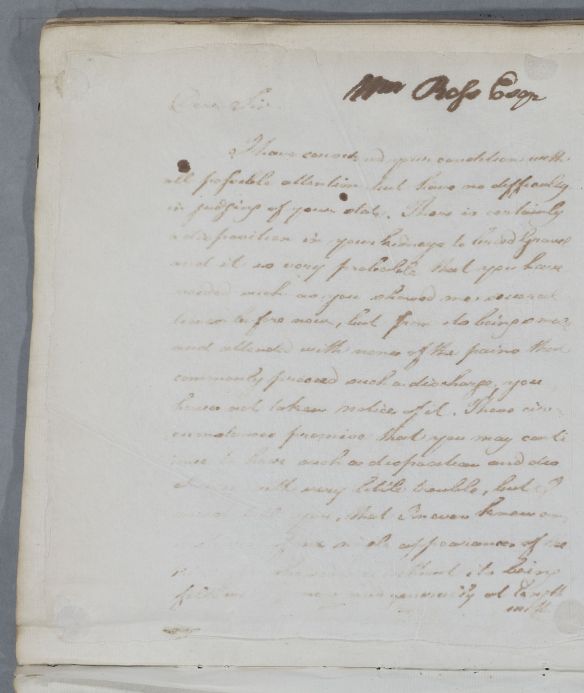 Wm Ross Esqr
Dear Sir.
I have considered your condition with
all possible attention but have no difficulty
in judging of your state. There is certainly
a disposition in your kidneys to breed Gravel
and it is very probable that you have
such as you showed me several
times before now, but from its being small
and attended with none of the pains that
commonly preceed such a discharge, you
have not taken notice of it. These cir-
cumstances promise that you may conti
nue to have such a disposition and dis
charge with very little trouble, but I
must tell you, that I never knew an
appearances of the
without its being
and generally at length
with